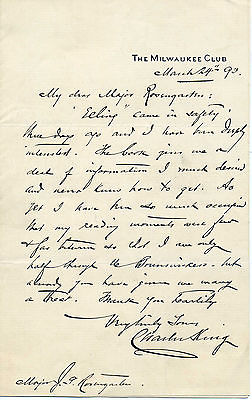 THE MILWAUKEE CLUB
March 24th 93
My dear Major Rosengarten:
"Eelking" came in safety
three days ago and I have been deeply
interested. The book gives me a
deal of information I much desired
and never knew how to get. As
yet I have been so much occupied
that my reading moments were few
& far between so that I am only
half through the Brunswickers. but
already you have given me many
a treat. Thank you heartily
Very truly Yours
Charles King
Major J. G. Rosengarten